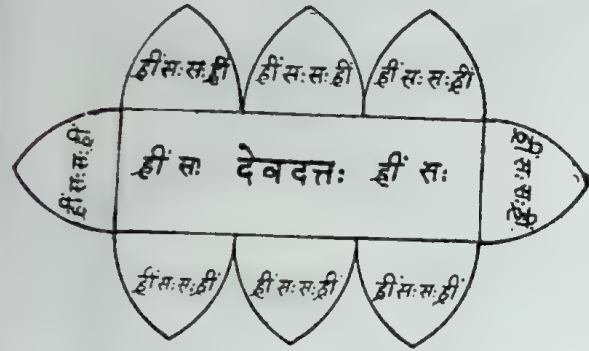 ह्रीं सः सः ह्रीं ह्रीं सः सः ह्रीं ह्रीं सः सः ह्रीं
ह्रीं सः सः ह्रीं
ह्रीं सः देवदत्तः ह्रीं सः
ह्रीं सः सः ह्रीं
ह्रीं सः सः ह्रीं ह्रीं सः सः ह्रीं ह्रीं सः सः ह्रीं